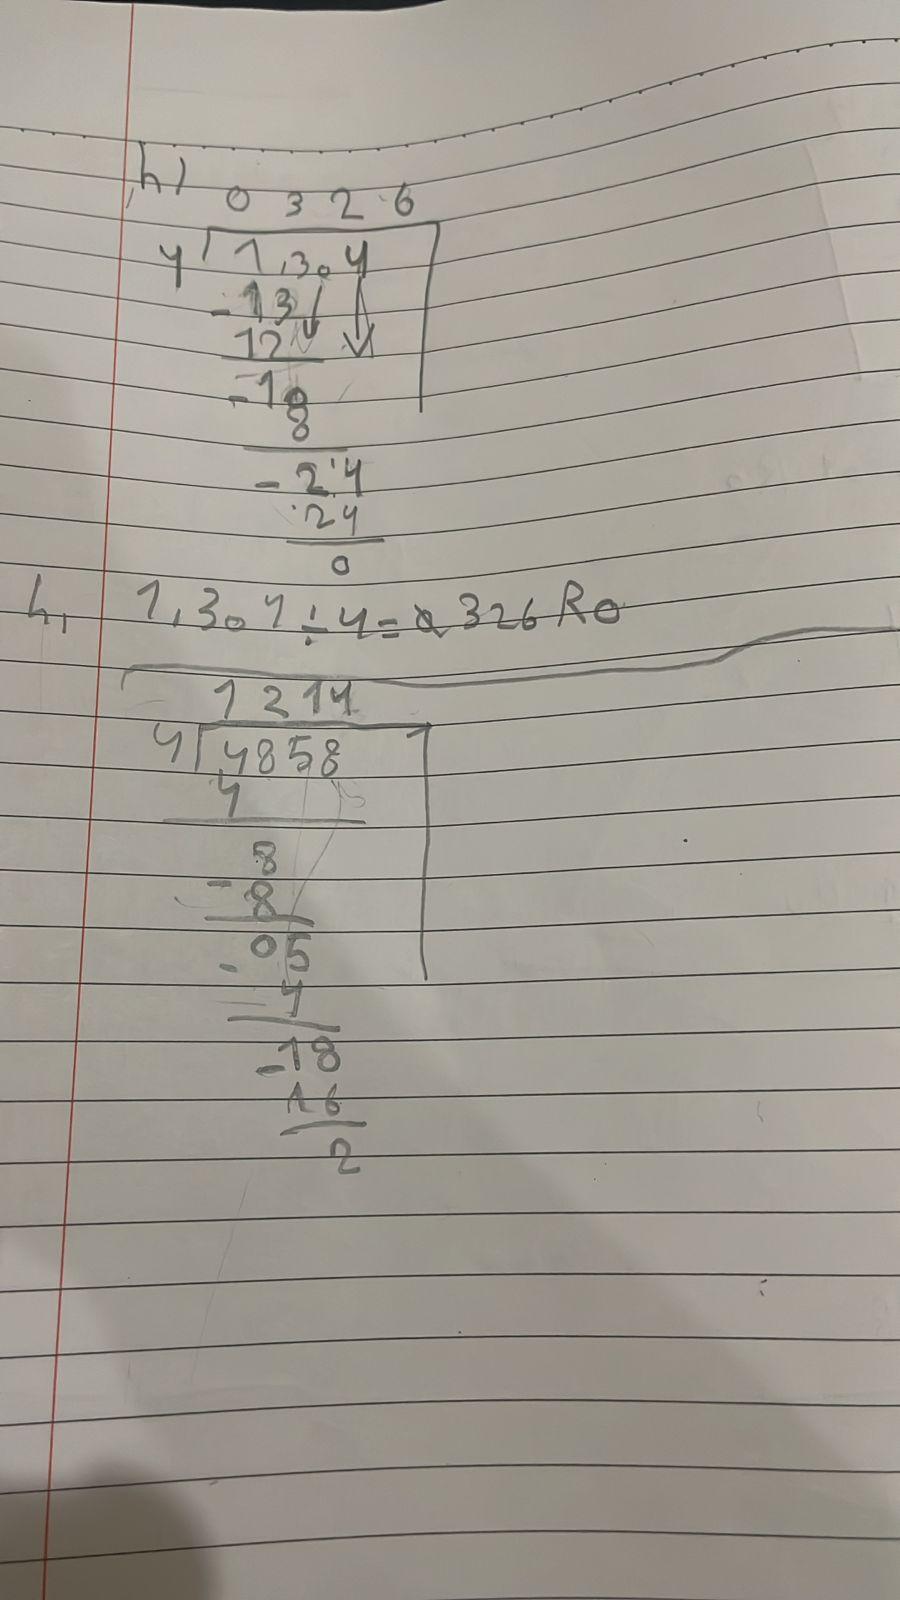 h)
0 3 2 6
4 1,304
- 13
12
- 10
8
- 24
24
0
h, 1,304 ÷ 4 = 326 R0
1 2 1 4
4 4858
4
8
- 8
- 05
4
- 18
16
2